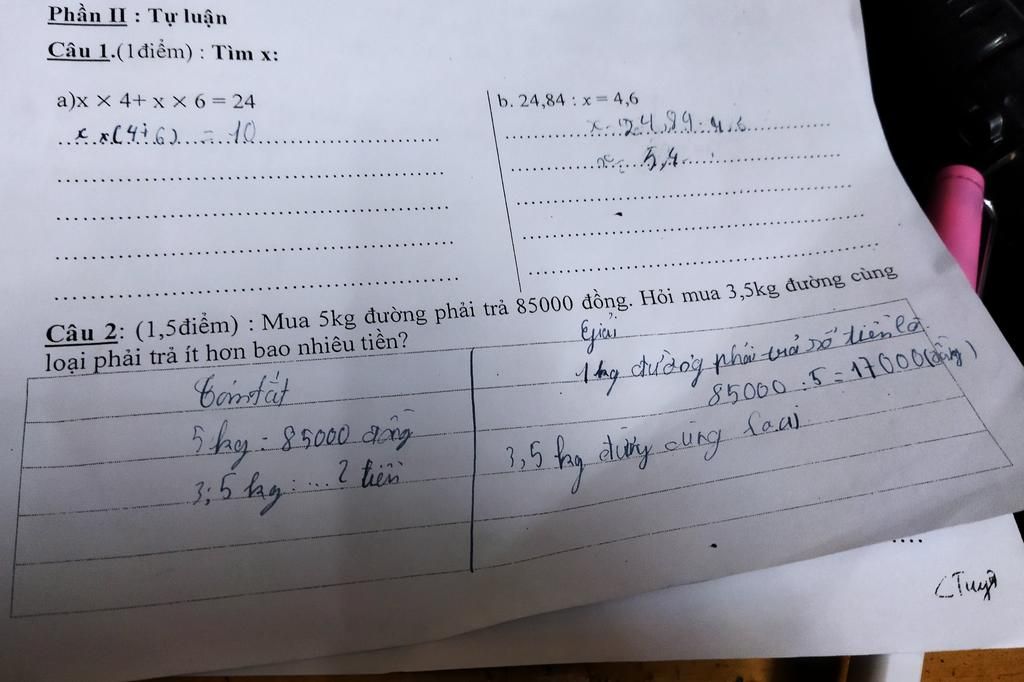 Phần II : Tự luận
Câu 1.(1điểm) : Tìm x:
a)x × 4+ x × 6 = 24
x x(4+6) = 10
b. 24,84 : x = 4,6
x = 24,84 : 4,6
x = 5,4
Câu 2: (1,5điểm) : Mua 5kg đường phải trả 85000 đồng. Hỏi mua 3,5kg đường cùng
loại phải trả ít hơn bao nhiêu tiền?
tóm tắt
5 kg : 85000 đồng
3,5 kg : ... ? tiền
Giải
1 kg đường phải trả số tiền là
85000 : 5 = 17000 (đồng)
3,5 kg đường cùng loại
....